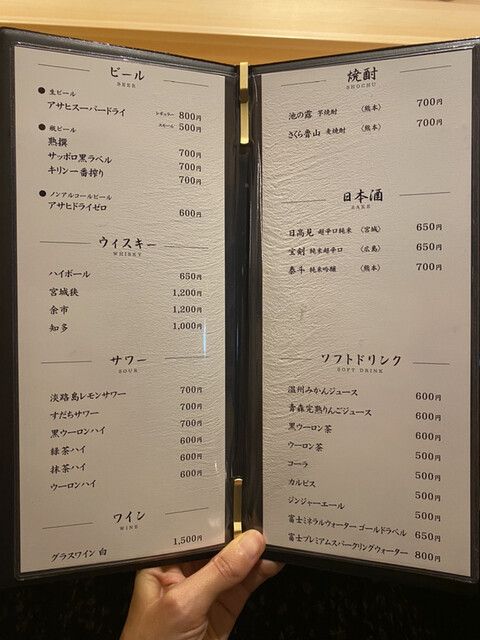 ビール
BEER
● 生ビール
アサヒスーパードライ レギュラー 800円
スモール 500円
● 瓶ビール
熟撰 700円
サッポロ黒ラベル 700円
キリン一番搾り 700円
● ノンアルコールビール
アサヒドライゼロ 600円
ウィスキー
WHISKY
ハイボール 650円
宮城狭 1,200円
余市 1,200円
知多 1,000円
サワー
SOUR
淡路島レモンサワー 700円
すだちサワー 700円
黒ウーロンハイ 700円
緑茶ハイ 600円
抹茶ハイ 600円
ウーロンハイ 600円
ワイン
WINE
グラスワイン 白 1,500円
焼酎
SHOCHU
池の露 芋焼酎 〈熊本〉 700円
さくら魯山 麦焼酎 〈熊本〉 700円
日本酒
SAKE
日高見 超辛口純米 〈宮城〉 650円
宝剣 純米超辛口 〈広島〉 650円
泰斗 純米吟醸 〈熊本〉 700円
ソフトドリンク
SOFT DRINK
温州みかんジュース 600円
青森完熟りんごジュース 600円
黒ウーロン茶 600円
ウーロン茶 500円
コーラ 500円
カルピス 500円
ジンジャーエール 500円
富士ミネラルウォーター ゴールドラベル 650円
富士プレミアムスパークリングウォーター 800円